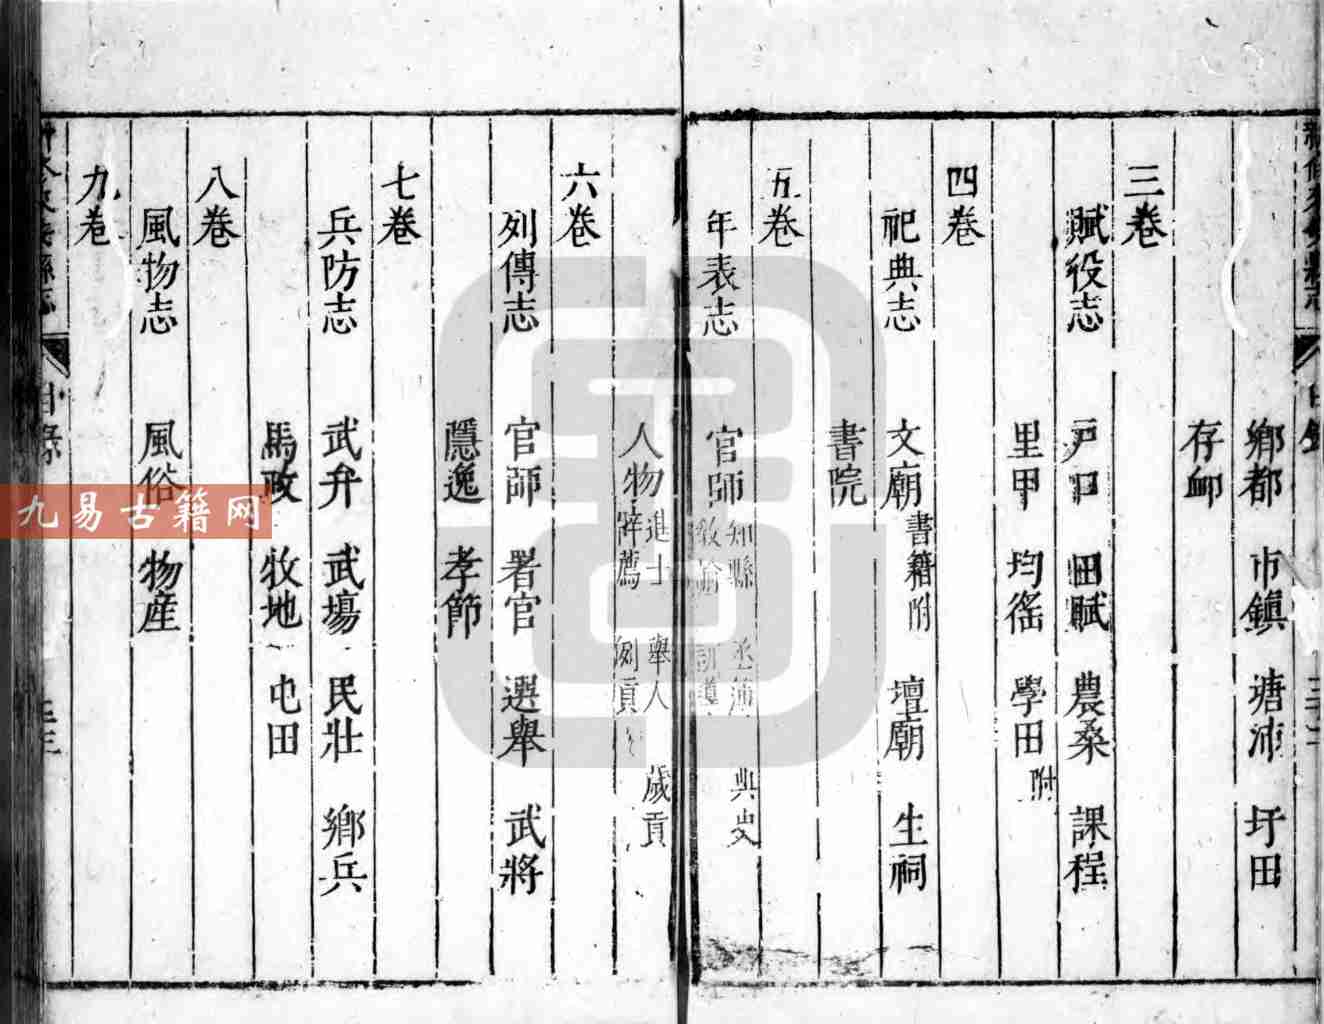 鄉都 市鎮 塘沛 圩田
存卹
三卷
賦役志 戸口 田賦 農桑 課程
里甲 均徭 學田附
四卷
祀典志 文廟書籍附 壇廟 生祠
書院
五卷
年表志 官師 知縣 丞簿 典史
教諭 訓導
人物 進士 舉人 歲貢
辟薦 例貢
六卷
列傳志 官師 署官 選舉 武將
隱逸 孝節
七卷
兵防志 武弁 武場 民壯 鄉兵
馬政 牧地 屯田
八卷
風物志 風俗 物産
九卷
縣志
目錄
九易古籍网